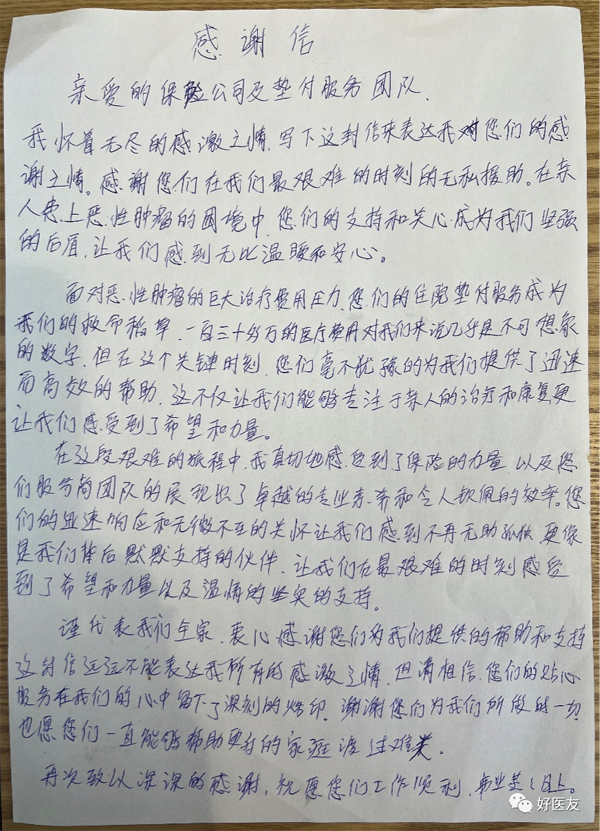 感谢信
亲爱的保险公司及垫付服务团队.
我怀着无尽的感激之情.写下这封信来表达我对您们的感
谢之情。感谢您们在我们最艰难的时刻的无私援助。在亲
人患上恶性肿瘤的困境中.您们的支持和关心.成为我们坚强
的后盾.让我们感到无比温暖和安心。
面对恶性肿瘤的巨大治疗费用压力.您们的住院垫付服务成为
我们的救命稻草.一百三十多万的医疗费用对我们来说几乎是不可想象
的数字.但在这个关键时刻.您们毫不犹豫的为我们提供了迅速
而高效的帮助.这不仅让我们能够专注于亲人的治疗和康复更
让我们感受到了希望和力量。
在这段艰难的旅程中.我真切地感受到了保险的力量.以及您
们服务商团队的展现出了卓越的专业素养和令人钦佩的效率。您
们的迅速响应和无微不至的关怀让我们感到不再无助孤独.更像
是我们背后默默支持的伙伴.让我们在最艰难的时刻感受
到了希望和力量以及温情的坚实的支持。
谨代表我们全家.衷心感谢您们为我们提供的帮助和支持
这封信远远不能表达我所有的感激之情.但请相信.您们的贴心
服务在我们的心中留下了深刻的烙印.谢谢您们为我们所做的一切
也愿您们一直能够帮助更多的家庭渡过难关.
再次致以深深的感谢,祝愿您们工作顺利.事业蒸蒸日上。
好医友